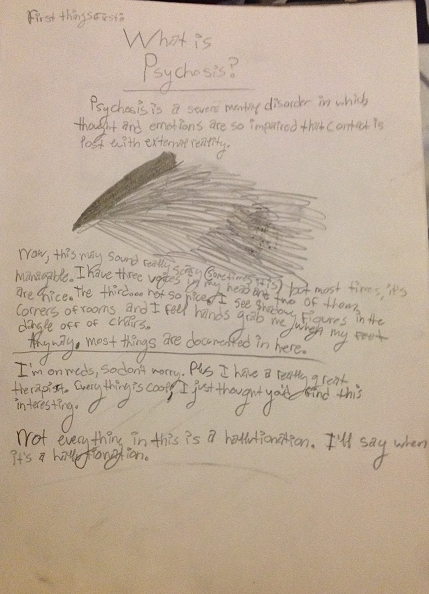 First things first:
What is
Psychosis?
Psychosis is a severe mental disorder in which
thought and emotions are so impaired that contact is
lost with external reality.
Now, this may sound really scary (sometimes it is) but most times, it's
manageable. I have three voices in my head. Two of them
are nice. The third... not so nice. I see shadow figures in the
corners of rooms and I feel hands grab me when my feet
dangle off of chairs.
Anyway, most things are documented in here.
I'm on meds, so don't worry. Plus I have a really great
therapist. Everything is cool, I just thought you'd find this
interesting.
Not everything in this is a hallutionation. I'll say when
it's a hallutionation.